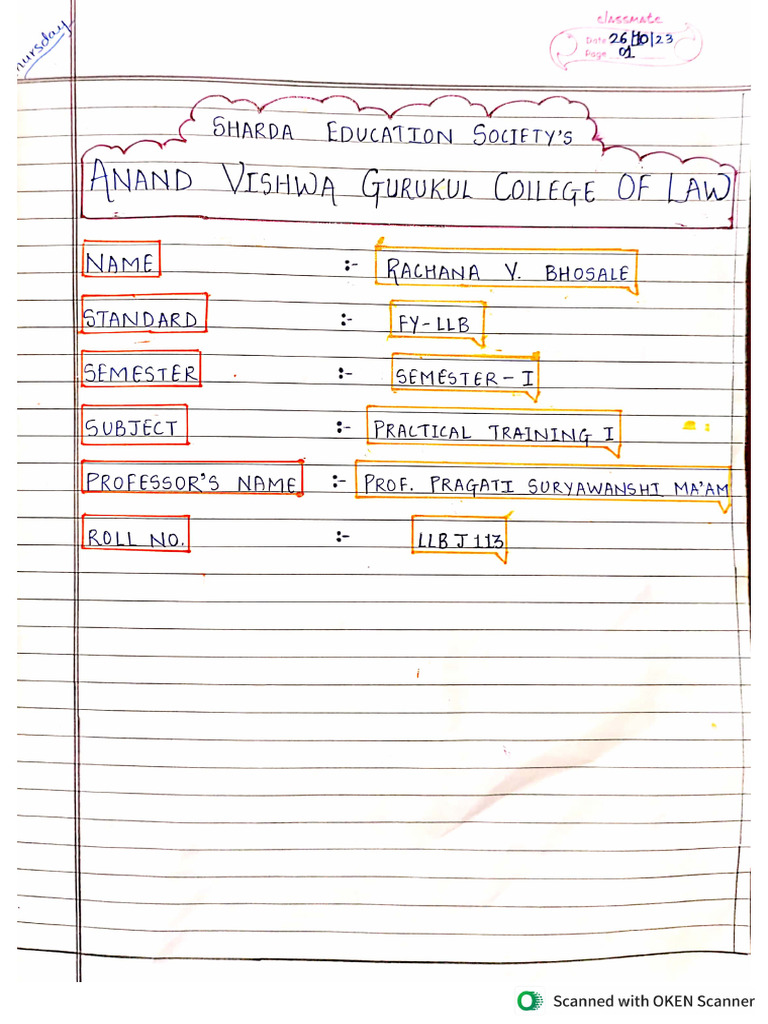 Thursday
classmate
Date 26/10/23
Page 01
SHARDA EDUCATION SOCIETY'S
ANAND VISHWA GURUKUL COLLEGE OF LAW
NAME :- RACHANA V. BHOSALE
STANDARD :- FY-LLB
SEMESTER :- SEMESTER-I
SUBJECT :- PRACTICAL TRAINING I
PROFESSOR'S NAME :- PROF. PRAGATI SURYAWANSHI MA'AM
ROLL NO. :- LLBJ113
Scanned with OKEN Scanner